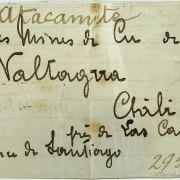 Atacamite
es Mines de Cu de
Naltagua
Chili
près de Las Ca
nce de Santiago
295